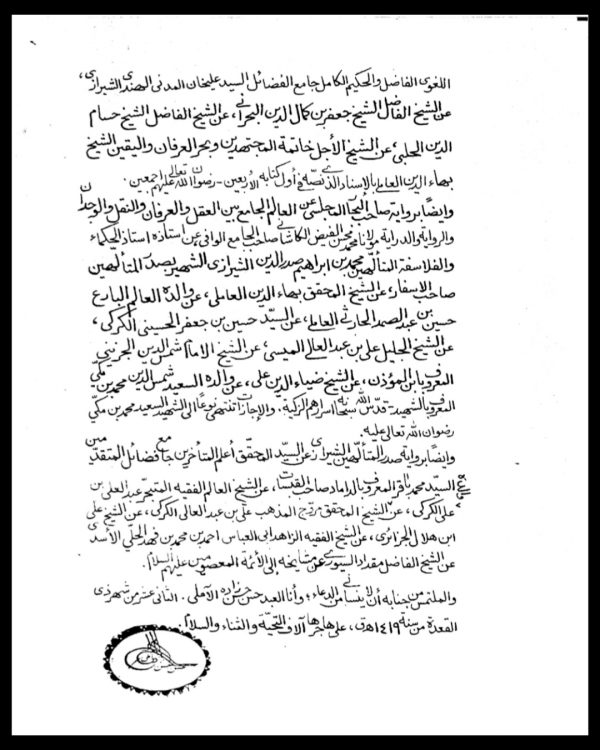 اللغوی الفاضل والحکیم الکامل جامع الفضائل السید علیخان المدنی الهندی الشیرازی،
عن الشیخ الفاضل الشیخ جعفر بن کمال الدین البحرانی، عن الشیخ الفاضل الشیخ حسام
الدین الحلبی، عن الشیخ الأجل خاتمة المجتهدین وبحر العرفان والیقین الشیخ
بهاء الدین العاملی بالإسناد الذی نصّه فی أول کتابه الأربعین - رضوان الله تعالی علیهم اجمعین.
وایضاً بروایة صاحب البحار المجلسی عن العالم الجامع بین العقل والعرفان والنقل والوجدان
والروایة والدرایة مولانا محمد محسن الفیض الکاشانی صاحب الجامع الوافی عن استاذه استاذ الحکماء
والفلاسفة المتألهین محمد بن ابراهیم صدر الدین الشیرازی الشهیر بصدر المتألهین
صاحب الاسفار، عن الشیخ المحقق بهاء الدین العاملی، عن والده العالم البارع
حسین بن عبد الصمد الحارثی العاملی، عن السیّد حسین بن جعفر الحسینی الکرکی،
عن الشیخ الجلیل علی بن عبد العالی المیسی، عن الشیخ الامام شمس الدین الجزینی
المعروف بابن المؤذن، عن الشیخ ضیاء الدین علی، عن والده السعید شمس الدین محمد بن مکی
المعروف بالشهید - قدّس الله سبحانه اسرارهم الزکیة. والإجازات تنتهی نوعاً الی الشهید السعید محمد بن مکی
رضوان الله تعالی علیه.
وایضاً بروایة صدر المتألهین الشیرازی عن السیّد المحقّق أعلم المتأخرین جامع فضائل المتقدمین
السیّد محمد باقر المعروف بالداماد صاحب القبسات، عن الشیخ العالم الفقیه المتبحّر عبد العالی بن
علی الکرکی، عن الشیخ المحقق مروّج المذهب علی بن عبد العالی الکرکی، عن الشیخ علی
ابن هلال الجزائری، عن الشیخ الفقیه الزاهد ابی العباس احمد بن محمد بن فهد الحلّی الأسدی
عن الشیخ الفاضل مقداد السیوری عن مشایخه إلی الأئمة المعصومین علیهم السلام.
والملتمس من جنابه أن لا ینسانی من الدعاء؛ وأنا العبد حسن حسن زاده الآملی. الثانی عشر من شهر ذی
القعدة من سنة ۱۴۱۹ هـ ق، علی هاجرها آلاف التحیّة والثناء والسلام.